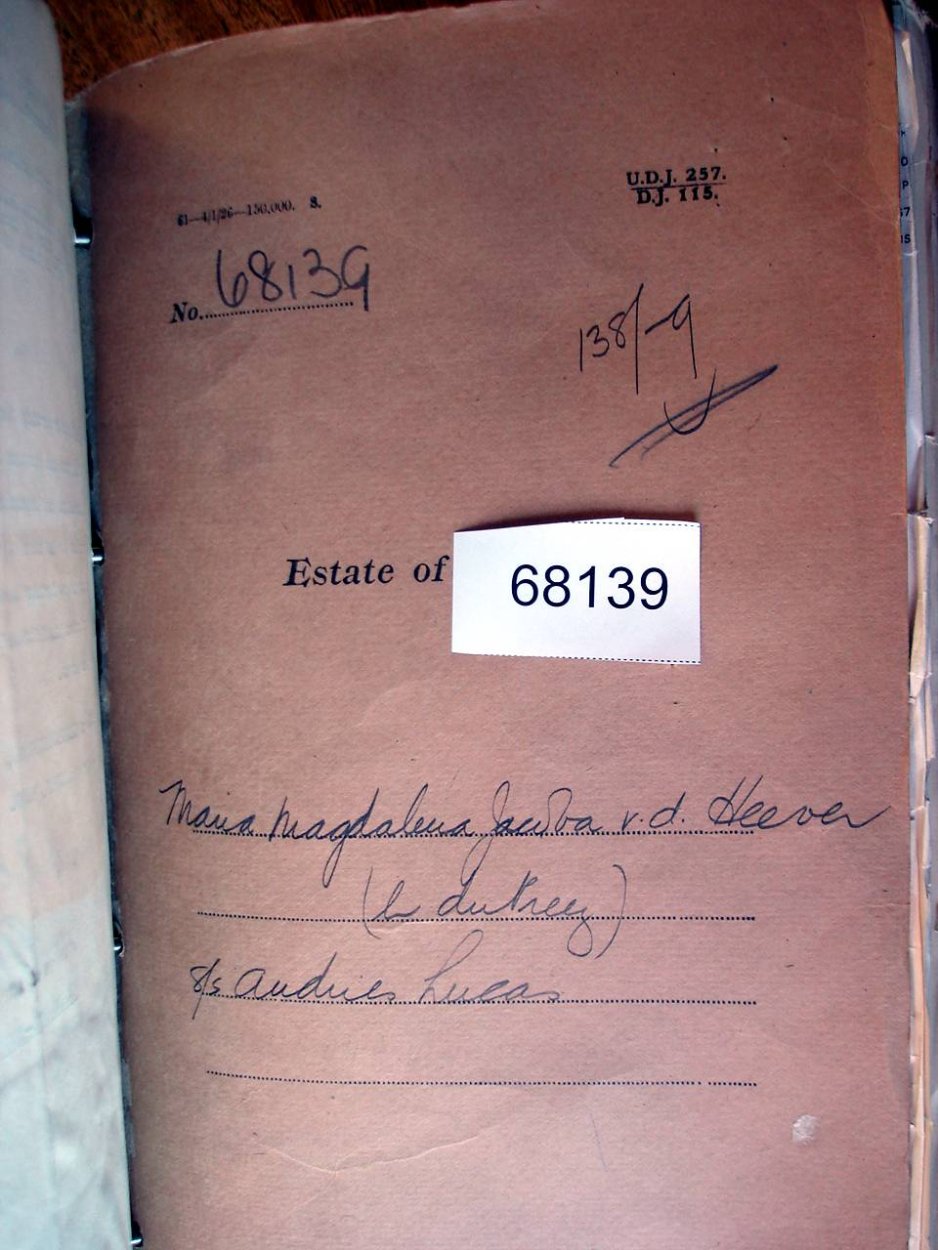 U.D.J. 257.
D.J. 115.
61—4/1/26—150,000. S.
No. 68139
138/-9
Estate of
68139
Maria Magdalena Jacoba v.d. Heever
(b du Preez)
s/s Andries Lucas